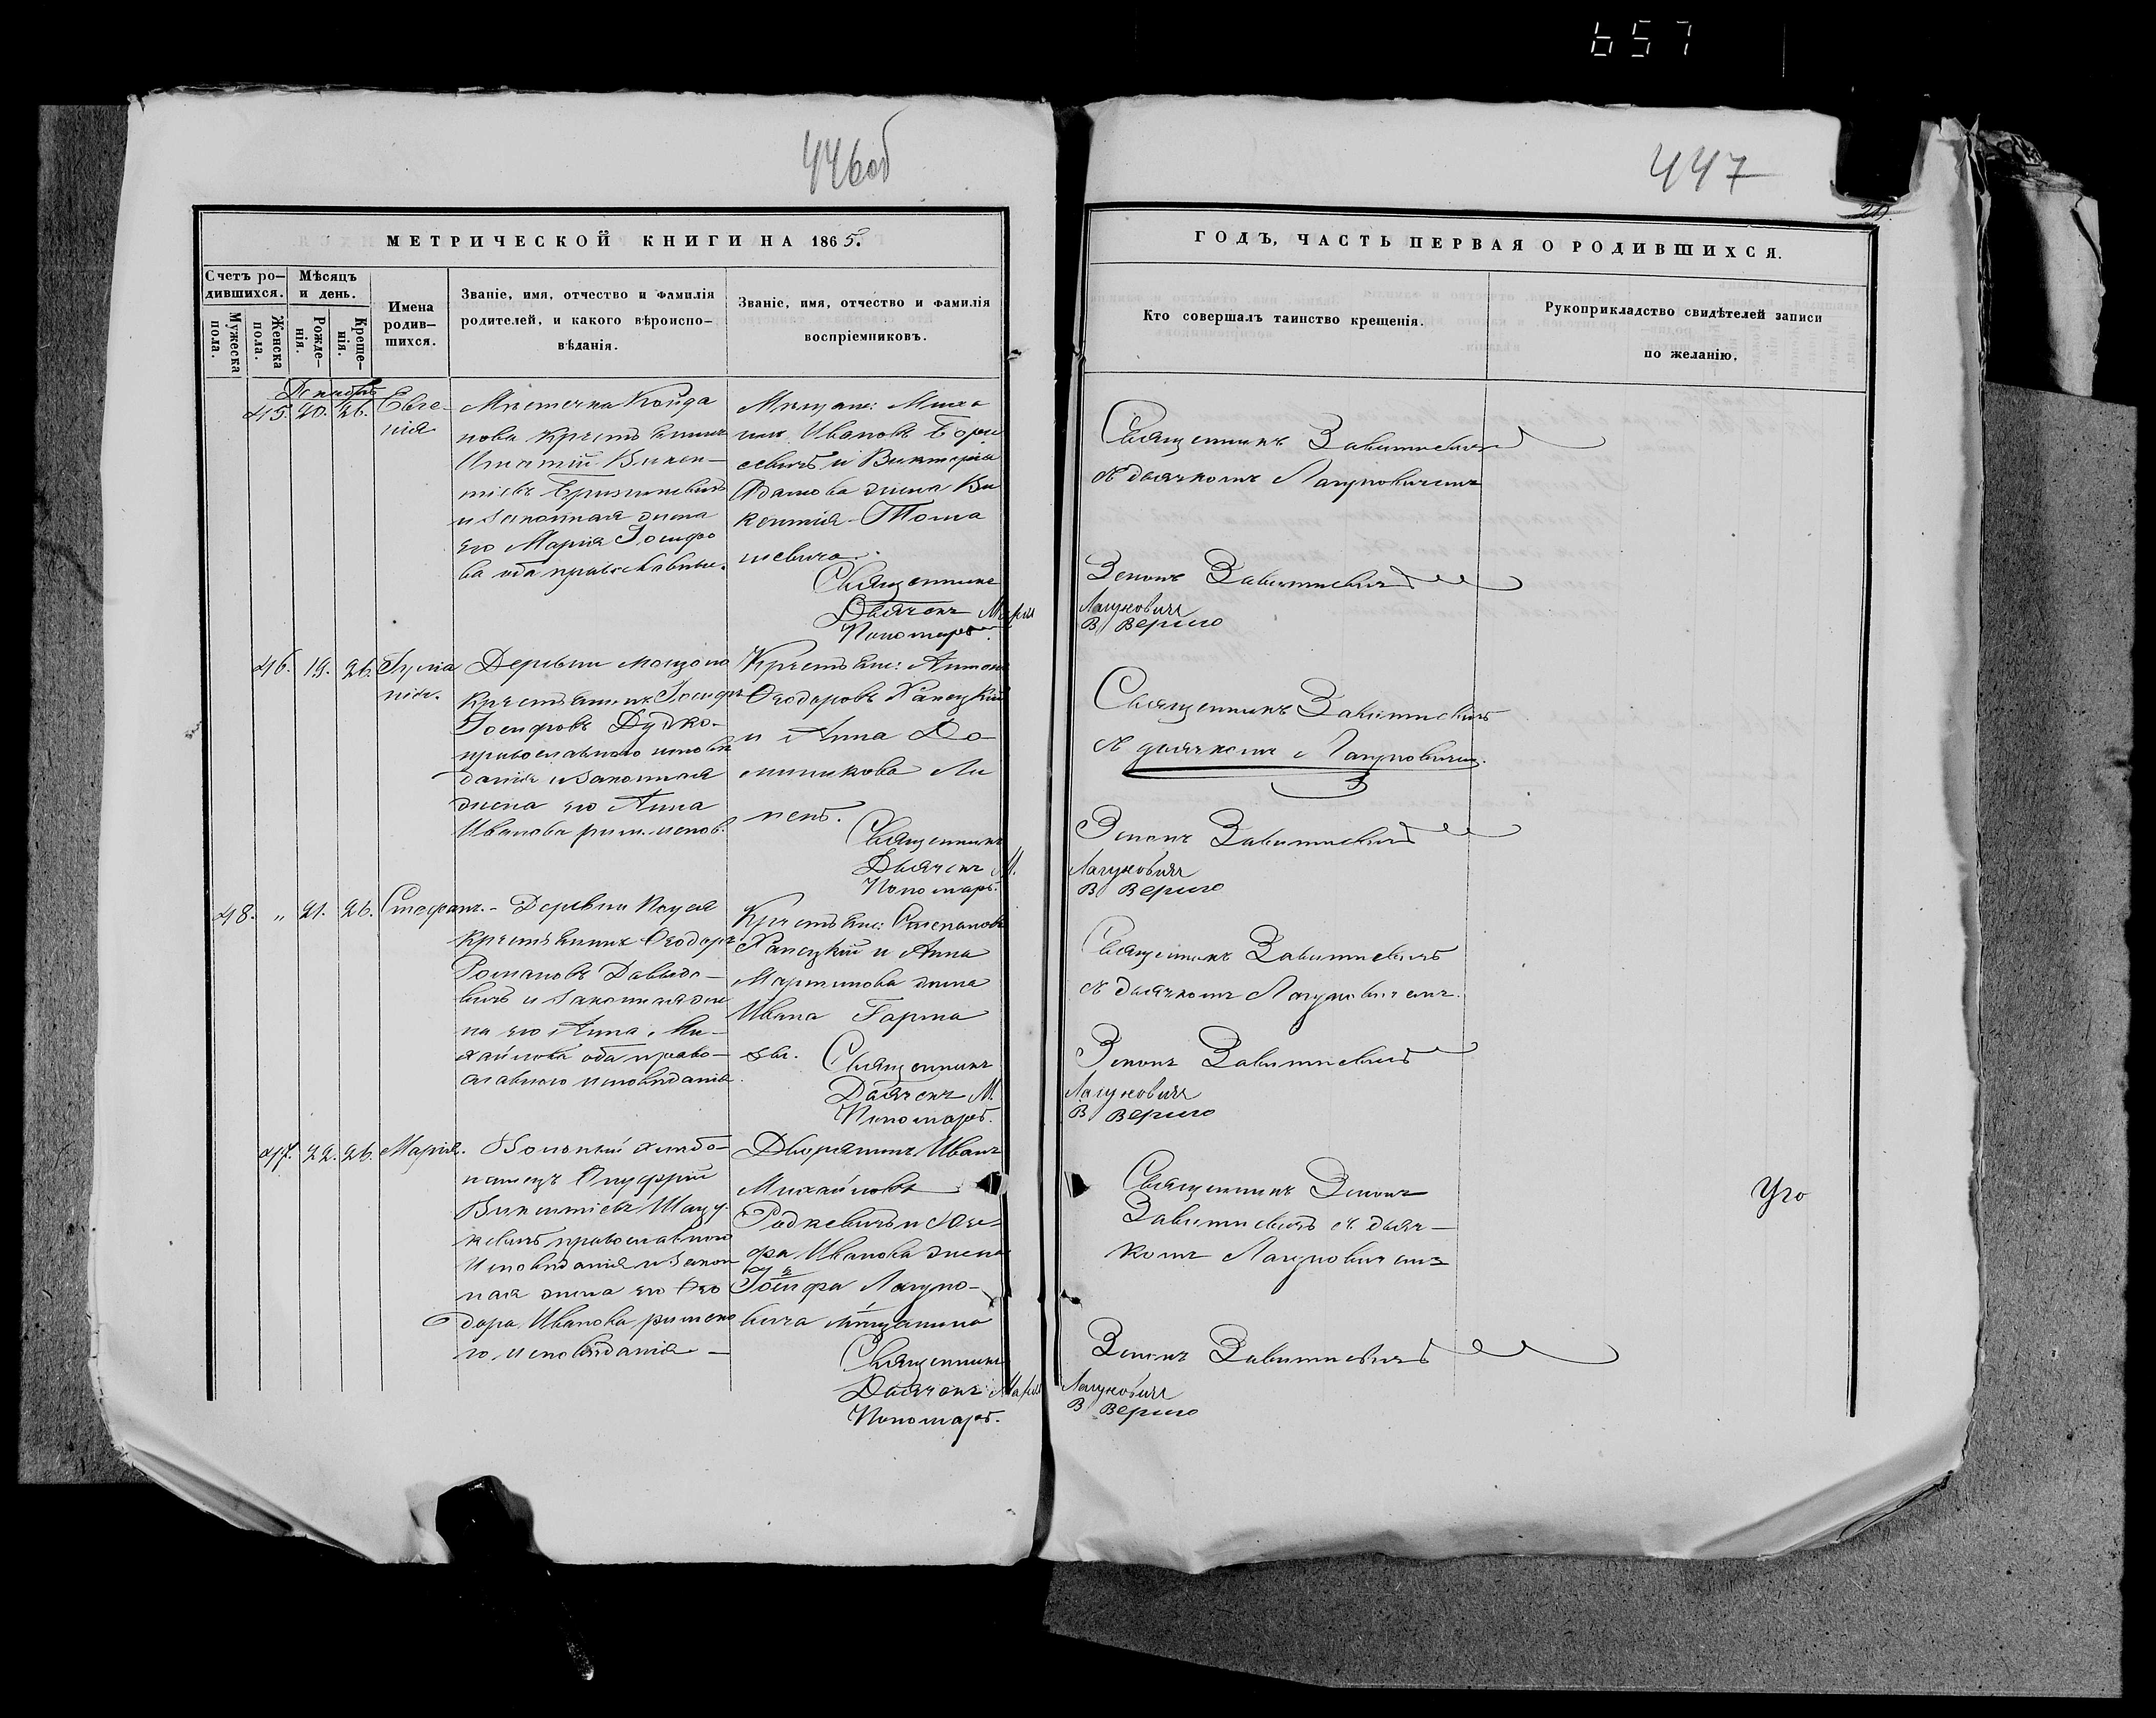 657
446об
447
МЕТРИЧЕСКОЙ КНИГИ НА 1865.
ГОДЪ, ЧАСТЬ ПЕРВАЯ О РОДИВШИХСЯ.
Счетъ ро-
дившихся.
Мужеска
пола.
Женска
пола.
Мѣсяцъ
и день.
Рожде-
нія.
Креще-
нія.
Имена
родив-
шихся.
Званіе, имя, отчество и фамилія
родителей, и какого вѣроиспо-
вѣданія.
Званіе, имя, отчество и фамилія
воспріемниковъ.
Кто совершалъ таинство крещенія.
Рукоприкладство свидѣтелей записи
по желанію.
Декабрь
45. 20. 26.
Евге-
нія
Мѣстечка Койда
нова крестьянинъ
Викен-
тіевъ
и законная жена
его Марія Іосифо
ва оба православные.
Мѣщане: Миха
илъ Ивановъ Бори
севичъ и Викторія
Адамова жена Ви
кентія Тома
шевича.
Священникъ
Дьячекъ
Пономарь
Священникъ Завитневичъ
съ дьячкомъ Лагуновичемъ
Зенонъ Завитневичъ
Лагуновичъ
В Верыго
46. 19. 26.
Деревни
крестьянинъ Іосифъ
Іосифовъ Дудко
православнаго исповѣ
данія и законная
жена его Анна
Иванова рим. испов.
Крестьяне: Антонъ
Ѳеодоровъ Ханецкій
и Анна До-
миникова Ли
пень.
Священникъ
Дьячекъ М.
Пономарь.
Священникъ Завитневичъ
съ дьячкомъ Лагуновичемъ.
Зенонъ Завитневичъ
Лагуновичъ
В Верыго
48. " 21. 26. Стефанъ.
Деревни
крестьянинъ Ѳеодоръ
Романовъ Давидо-
вичъ и законная же
на его Анна Ми-
хайлова оба право-
славнаго исповѣданія.
Крестьяне: Степановъ
Ханецкій и Анна
Мартинова жена
Ивана
Священникъ
Дьячекъ М.
Пономарь.
Священникъ Завитневичъ
съ дьячкомъ Лагуновичемъ.
Зенонъ Завитневичъ
Лагуновичъ
В Верыго
47. 22. 26. Марія.
Вольный хлѣбо-
пашецъ Онуфрій
Викентіевъ Шацу-
кевичъ православнаго
исповѣданія и закон
ная жена его Ѳео
дора Иванова римска
го исповѣданія
Дворянинъ Иванъ
Михайловъ
Родкевичъ и Юзе-
фа Иванова жена
Іосифа Лагуно-
вича мѣщанина
Священникъ
Дьячекъ
Пономарь.
Священникъ Зенонъ
Завитневичъ съ дьяч-
комъ Лагуновичемъ
Зенонъ Завитневичъ
Лагуновичъ
В Верыго